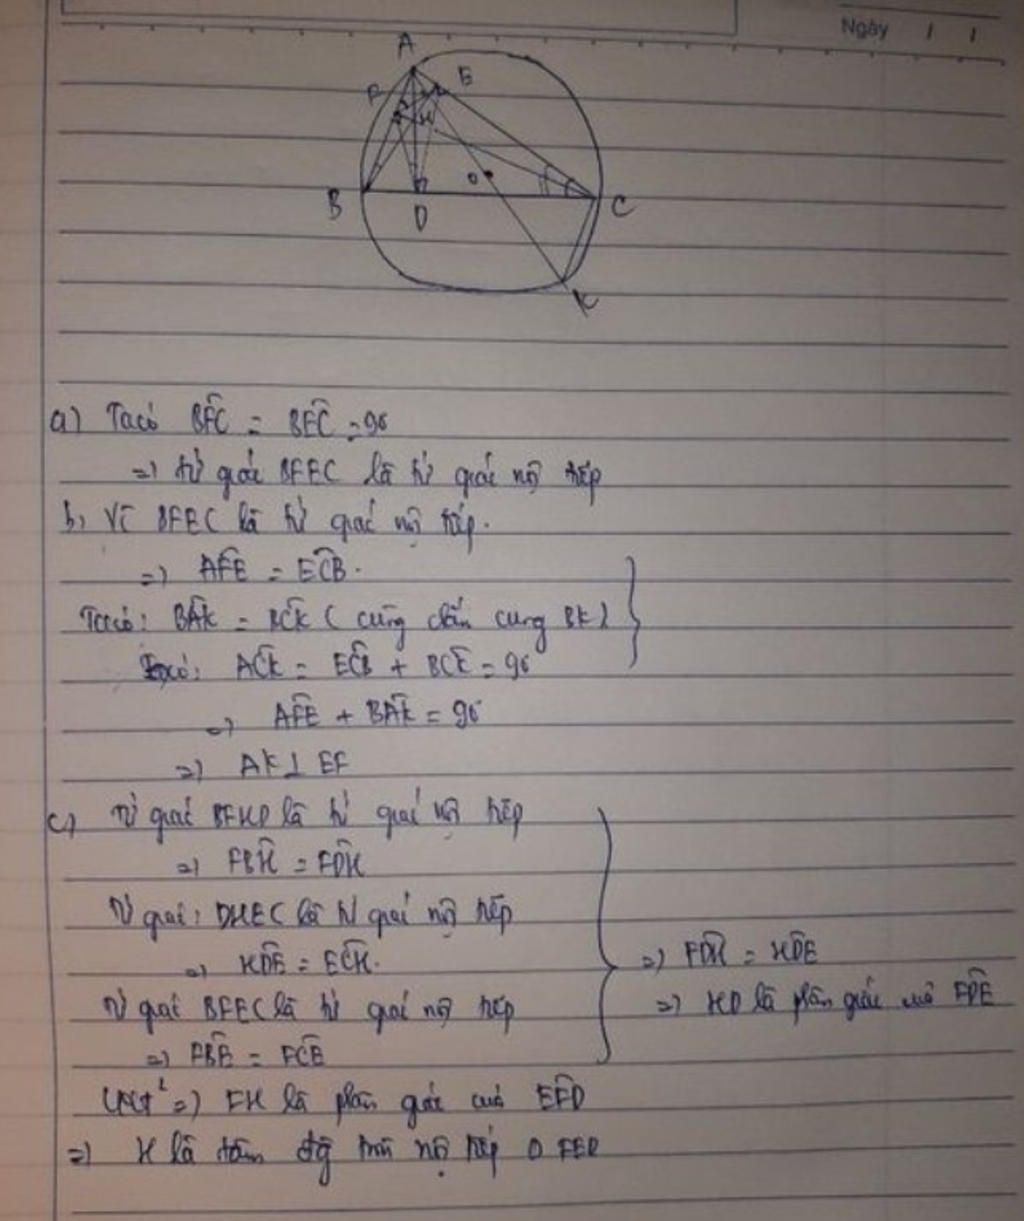 Ngày / /
A
F E
H
B D O C
K
a) Ta có BF̂C = BÊC = 90
=) tứ giác BFEC là tứ giác nội tiếp
b, Vì BFEC là tứ giác nội tiếp.
=) AF̂E = EĈB.
Ta có: BÂK = BĈK ( cùng chắn cung BK )
có: AĈK = EĈB + BĈK = 90
=) AF̂E + BÂK = 90
=) AK ⊥ EF
c, Tứ giác BFHD là tứ giác nội tiếp
=) FB̂H = FD̂H
Tứ giác: DHEC là tứ giác nội tiếp
=) HD̂E = EĈH. =) FD̂H = HD̂E
Tứ giác BFEC là tứ giác nội tiếp =) HD là phân giác của FD̂E
=) FB̂E = FĈE
CMT² =) FH là phân giác của EF̂D
=) H là tâm đg tròn nội tiếp Δ FED